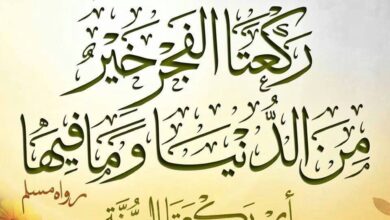 رَكْعَتَا الفَجْرِ خَيْرٌ
مِنَ الدُّنْيَا وَمَا فِيهَا
رواه مسلم
أي ركعتا السُّنَّة